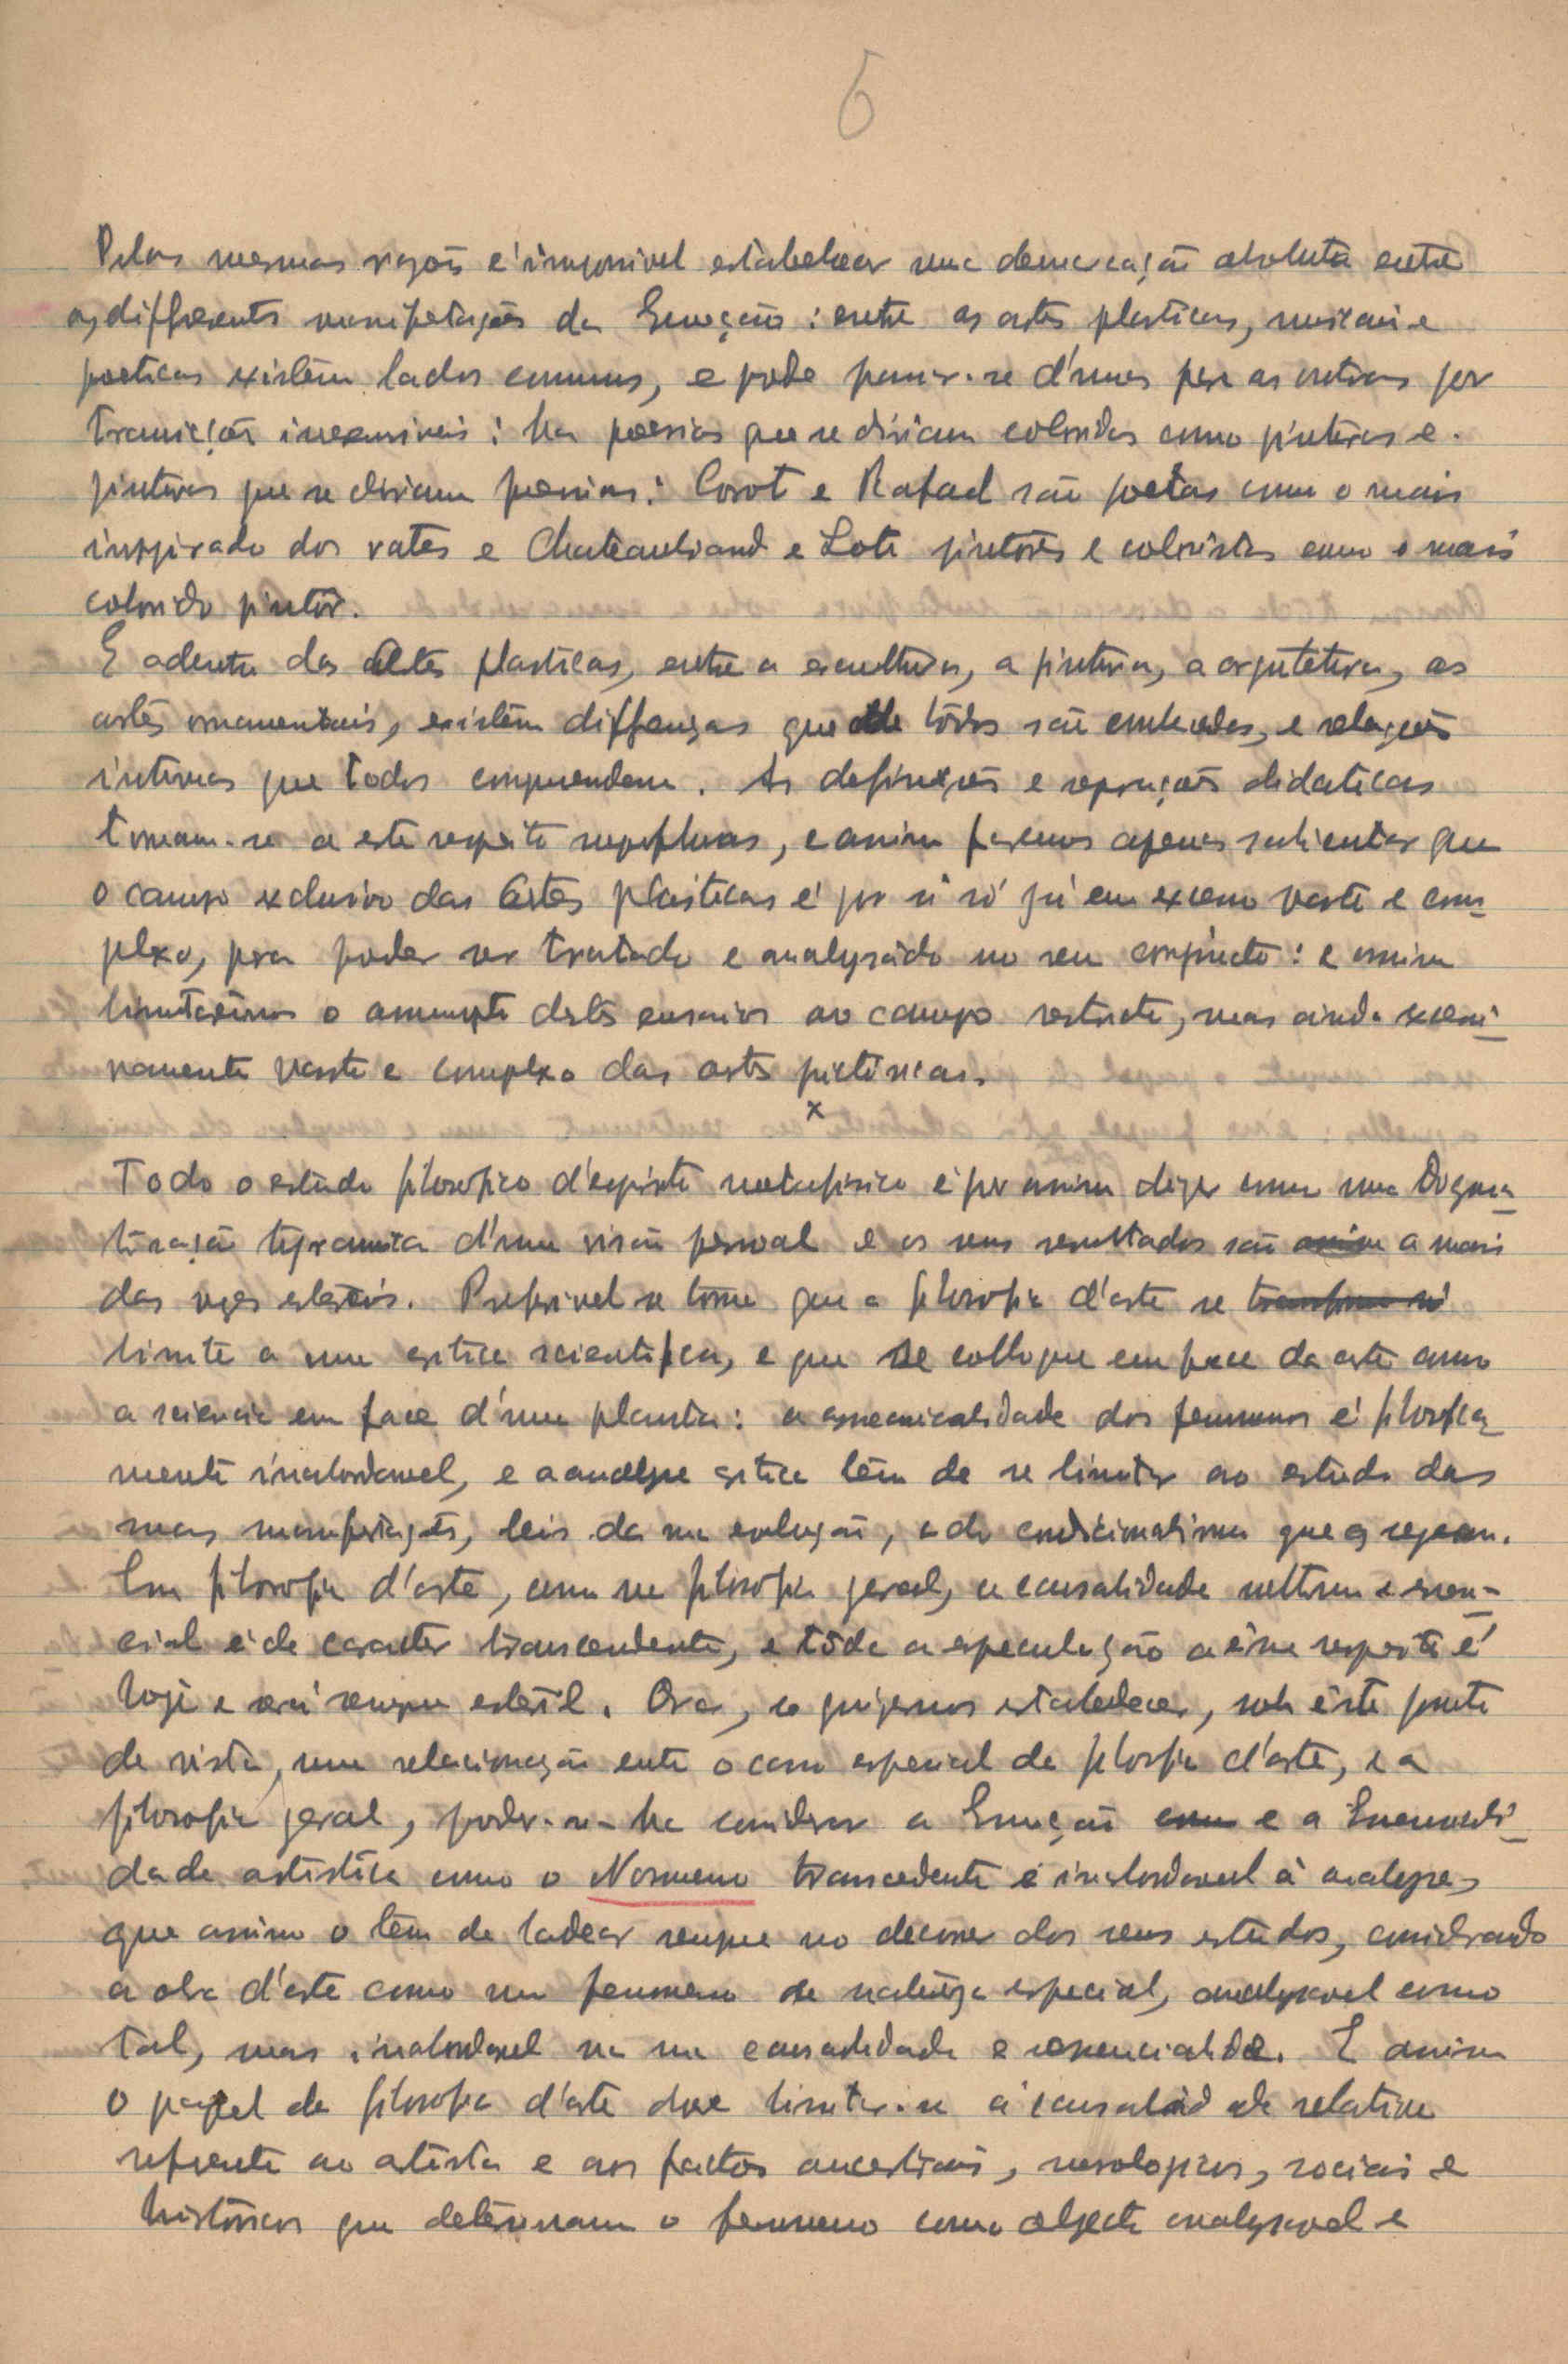 6
Pelas mesmas razões é impossivel estabelecer uma demarcação absoluta entre
as differentes manifestações da Emoção : entre as artes plasticas, musicais e
poeticas existem lados comuns, e pode passar-se d'umas para as outras por
transições insensiveis : ha poesias que se diriam coloridas como pinturas e
pinturas que se diriam poesias : Corot e Rafael são poetas como o mais
inspirado dos vates e Chateaubriand e Loti pintores e coloristas como o mais
colorido pintôr.
E adentro das Artes plasticas, entre a escultura, a pintura, a arquitetura, as
artes ornamentais, existem differenças que todos são embuidos, e relações
intimas que todos comprendem. As definições e separações didaticas
tornam-se a este respeito superfluas, e assim faremos apenas salientar que
o campo exclusivo das Artes plásticas é por si só já em excesso vasto e com-
plexo, para poder ser tratado e analysado no seu conjuncto : e assim
limitaremos o assumpto destes ensaios ao campo restricto, mas ainda excessi-
vamente vasto e complexo das artes pictóricas.
x
Todo o estudo filosofico d'espirito metafisico é por assim dizer como uma Dogma-
tisação tyrannica d'uma visão pessoal e os seus resultados são assim a mais
das vezes estereis. Prefrivel se torna que a filosofia d'arte se transforme só
limite a uma critica scientifica, e que se colloque em face da arte como
a sciencia em face d'uma planta : a essencialidade dos fenmenos é filosofica-
mente inabordavel, e a analyse critica têm de se limitar ao estudo das
suas manifestações, leis da sua evolução, e do condicionalismo que as regem.
Em filosofia d'arte, como na filosofia geral, a causalidade ultima e essen-
cial é de caracter transcendente, e tôda a especulação a êsse respeito é
hoje e será sempre esteril. Ora, se quizermos estabelecer, sob êste ponto
de vista, uma relacionação entre o caso especial da filosofia d'arte, e a
filosofia geral, poder-se-ha considerar a Emoção como e a Essenciali-
dade artistica como o Noumeno transcedente e inabordavel à analyse,
que assim o têm de ladear sempre no decorrer dos seus estudos, considrando
a obra d'arte como um fenmeno de natureza especial, analysavel como
tal, mas inabordavel na sua causalidade e essencialidade. E assim
o papel da filosofia d'arte deve limitar-se á causalidade relativa
referente ao artista e aos factos ancestrais, nosologicos, sociais e
históricos que determinam o fenmeno como objecto analysavel e